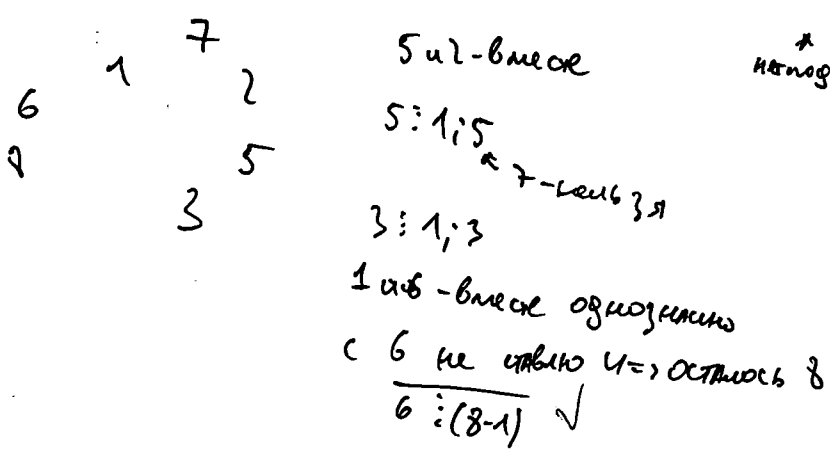 7
1
2
6
8
5
3
5 и 2 - вместе
нет под
5 ⋮ 1; 5
7 - нельзя
3 ⋮ 1; 3
1 и 6 - вместе однозначно
с 6 не ставлю 4 => осталось 8
6 ⋮ (8-1) ✓